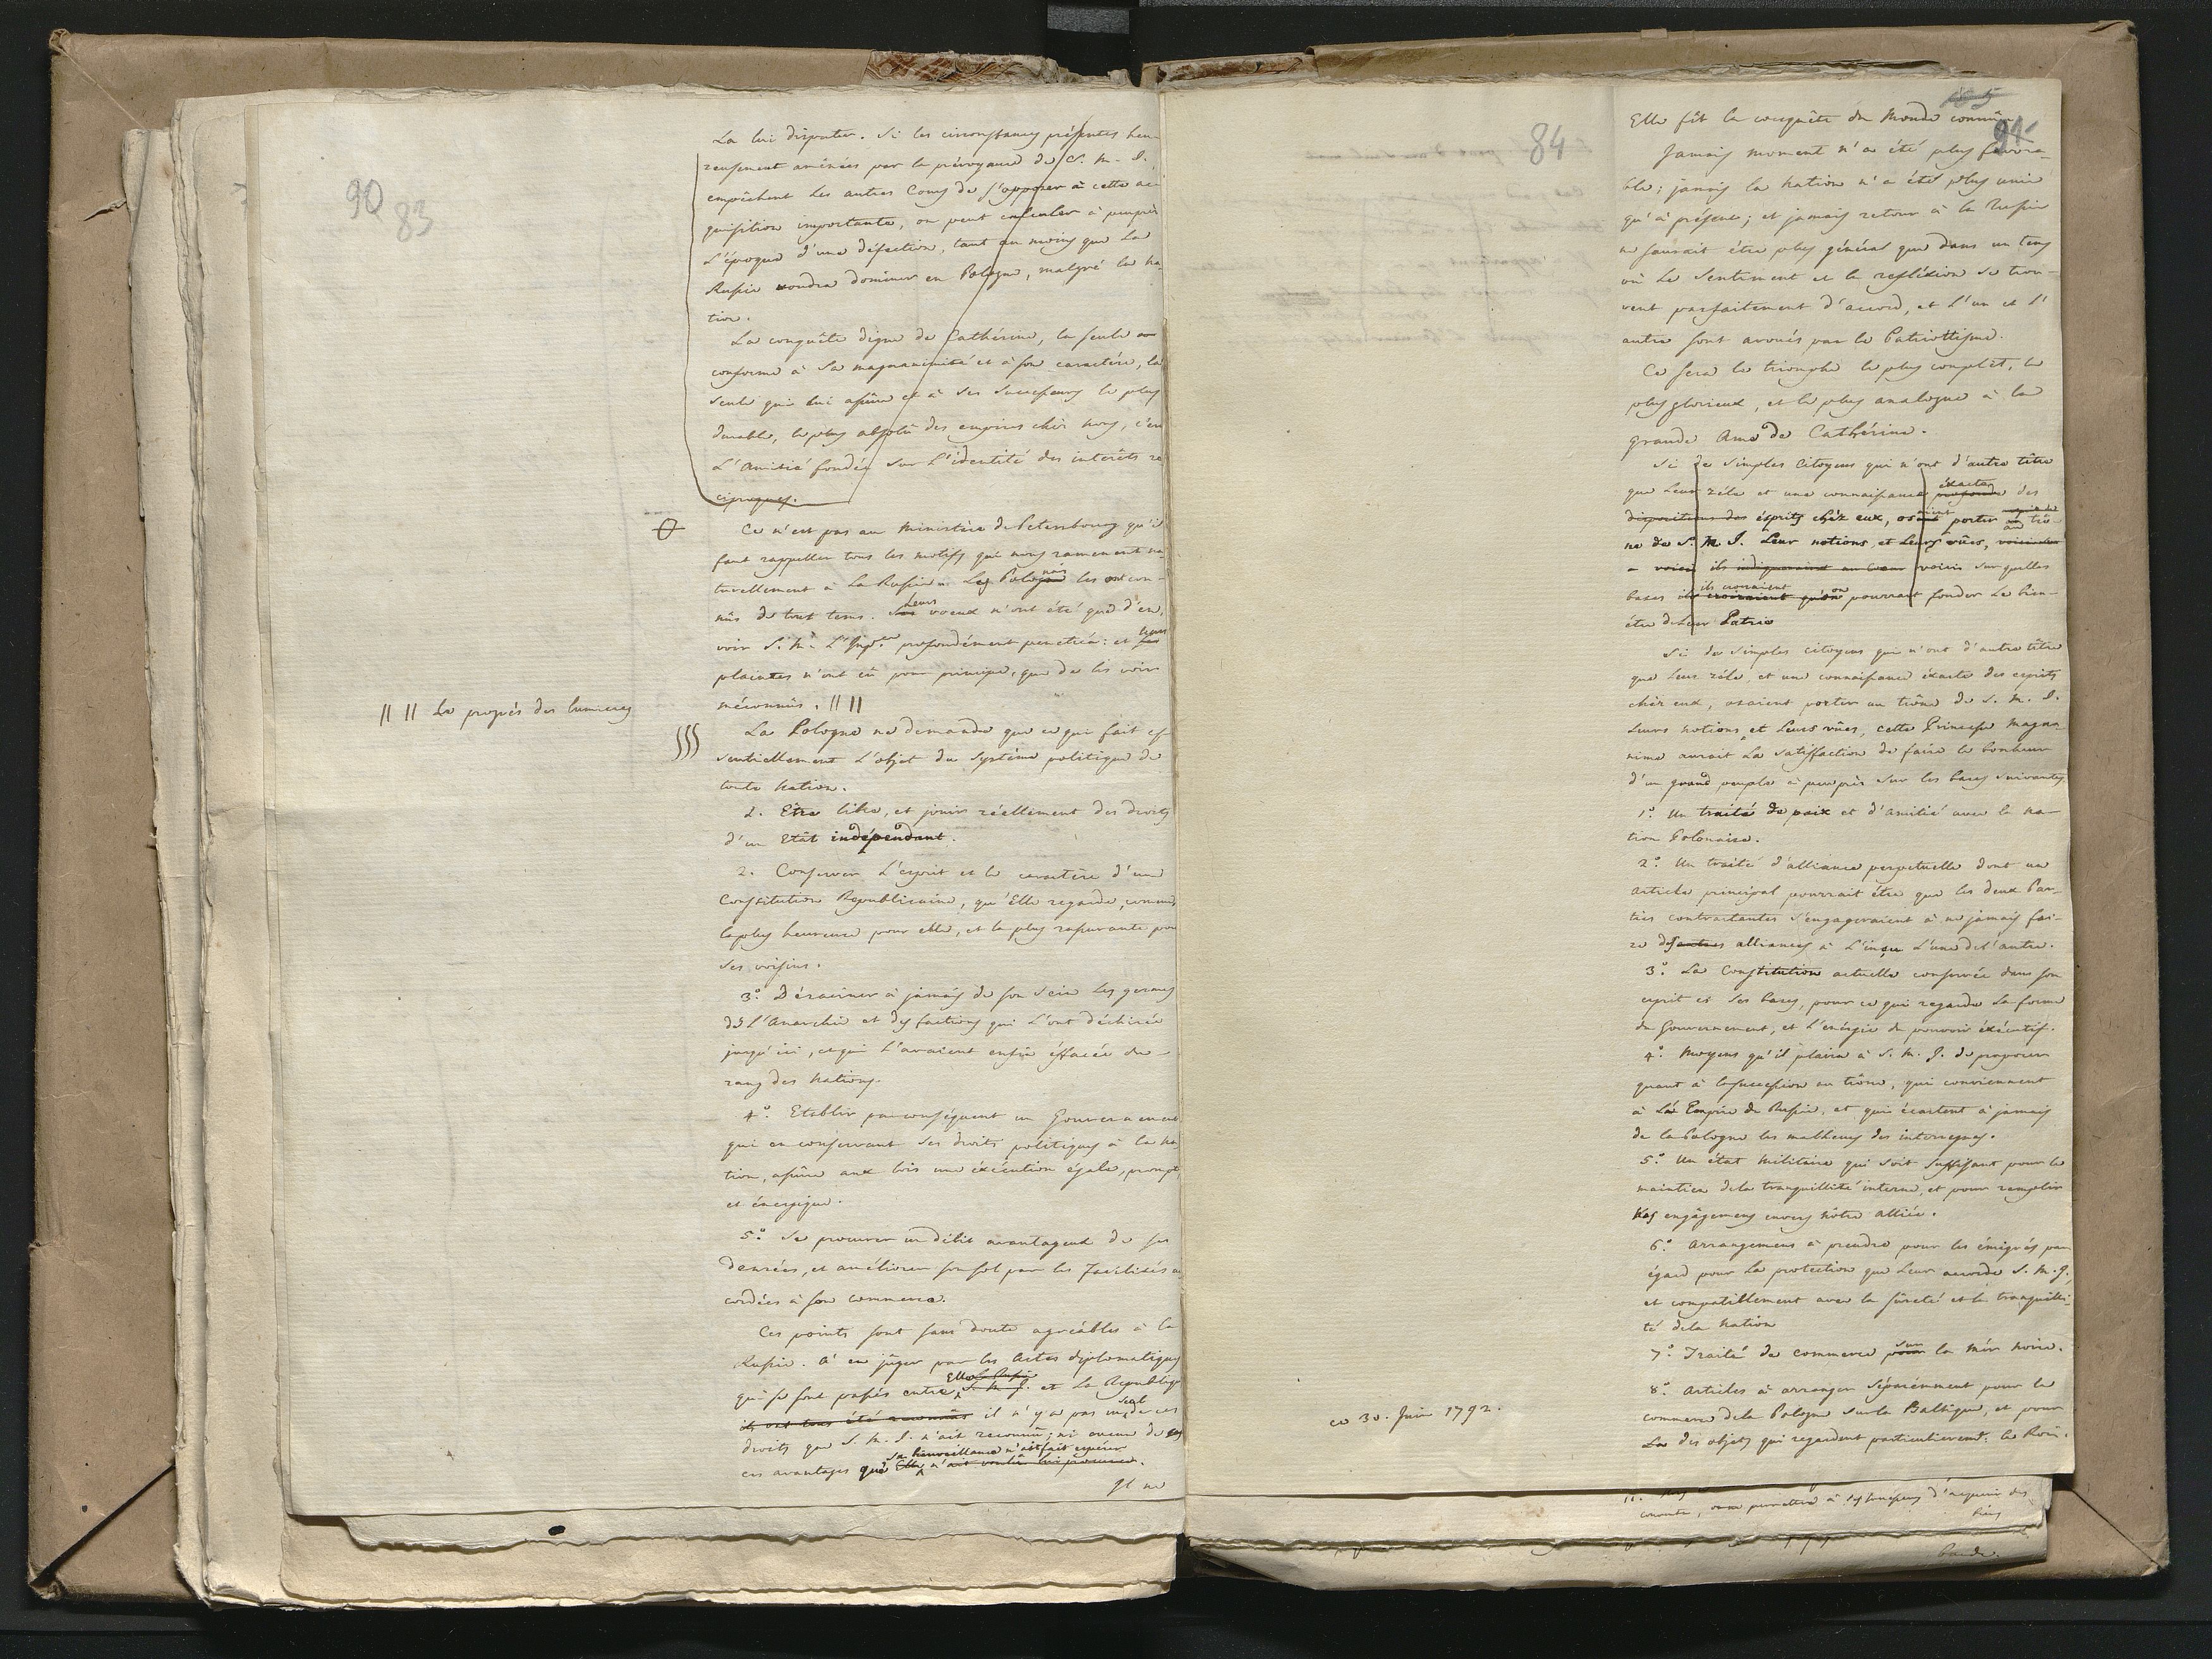 90
83
La lui disputer. Si les circonstances présentes heu-
reusement amenées par la prévoyance de S. M. I.
empêchent les autres Cours de s'opposer à cette ac-
quisition importante, on peut calculer à peuprès
L'époque d'une défection, tant au moins que La
Russie voudra dominer en Pologne, malgré la na-
tion.
La conquête digne de Cathérine, la seule
conforme à Sa magnanimité et à son caractère, la
seule qui lui assûre et à ses Successeurs le plus
durable, le plus absolû des empires chéz nous, c'en
L'Amitié fondée sur L'identité des interêts ré
ciproques.
Ce n'est pas au Ministère de Petersbourg qu'il
faut rappeller tous les motifs qui nous ramenent na
turellement à La Russie. Les Polognois les ont con-
nûs de tout tems. Leurs voeux n'ont été que d'en
voir S. M. L'Imp.ce profondément penetrée: et leurs
plaintes n'ont eû pour principe, que de les voir
méconnûs. || ||
|| || Le progrès des lumieres
La Pologne ne demande que ce qui fait es
sentiellement L'objet du Systéme politique de
toute Nation.
1. Etre libre, et jouir réellement des droits
d'un Etât indépendant.
2. Conserver L'esprit et le caractère d'une
Constitution Republicaine, qu'Elle regarde, comme
la plus heureuse pour elle, et la plus rassurante pour
Ses voisins.
3.° Déraciner à jamais de son Sein Les germes
de L'Anarchie et des factions qui L'ont déchirée
jusqu'ici, et qui L'avaient enfin éffacée du
rang des Nations.
4.° Etablir par conséquent un Gouvernement
qui en conservant Ses droits politiques à la na
tion, assûre aux lois une éxécution égale, prompte,
et énergique.
5.° Se procurer un débit avantageux de ses
denrées, et améliorer son sol par les Facilités ac
cordées à son commerce.
Ces points sont sans doute agréables à la
Russie. A en jûger par les Actes diplomatiques
Elle La Russie
qui se sont passés entre S. M. I. et La République
ils ont tous été reconnûs il n'y a pas un seul de ces
droits que S. M. I. n'ait reconnû; ni aucun de
Sa bienveillance n'ait fait espérer
ces avantages que Elle n'ait voulu lui procurer.
Il ne
84
91
Elle fût la conquête du Monde connû.
Jamais moment n'a été plus favora-
ble; jamais la Nation n'a été plus unie
qu'à présent; et jamais retour à la Russie
ne saurait être plus général que dans un tems
où Le Sentiment et la refléxion se trou-
vent parfaitement d'accord, et L'un et l'
autre sont avoués par le Patriotisme.
Ce sera le triomphe le plus complêt, le
plus glorieux, et le plus analogue à la
grande Ame de Cathérine.
Si de Simples Citoyens qui n'ont d'autre tître
que Leur zéle et une connaissance exacte profonde des
dispositions des ésprits chéz eux, osaient porter au trô-
ne de S. M. I. Leur notions, et Leurs vûes,
voici sur quelles
bases ils croiraient qu'on pourrait fonder Le bien-
être de Leur Patrie
Si de Simples citoyens qui n'ont d'autre tître
que Leur zéle, et une connaissance éxacte des esprits
chéz eux, osaient porter au trône de S. M. I.
Leurs notions, et Leurs vûes, cette Princesse magna-
nime aurait La Satisfaction de faire le bonheur
d'un grand peuple à peu près sur les bases suivantes
1.° Un traité de paix et d'amitié avec la na-
tion Polonaise.
2.° Un traité d'alliance perpetuelle dont un
article principal pourrait être que les deux Par-
ties contractantes s'engageraient à ne jamais fai-
re des autres alliances à L'inçu L'une de L'autre.
3.° La Constitution actuelle conservée dans son
esprit et Ses bases, pour ce qui regarde La forme
du Gouvernement, et L'énérgie du pouvoir éxécutif.
4.° Moyens qu'il plaira à S. M. I. de proposer
quant à la succession au trône, qui conviennent
à La Empire de Russie, et qui écartent à jamais
de la Pologne les malheurs des interregnes.
5.° Un état Militaire qui soit Suffisant pour le
maintien de la tranquillité interne, et pour remplir
Nos engâgemens envers Nôtre alliée.
6.° Arrangemens à prendre pour les émigrés par
égard pour La protection que Leur accorde S. M. I.,
et compatiblement avec la sûreté et la tranquilli-
té de la Nation
7.° Traité de commerce sur la Mér Noire.
8.° Articles à arranger Séparémment pour le
commerce de la Pologne sur la Baltique, et pour
La des objets qui regardent particulierem.t le Roi.
ce 30. Juin 1792.
d'acquerir des